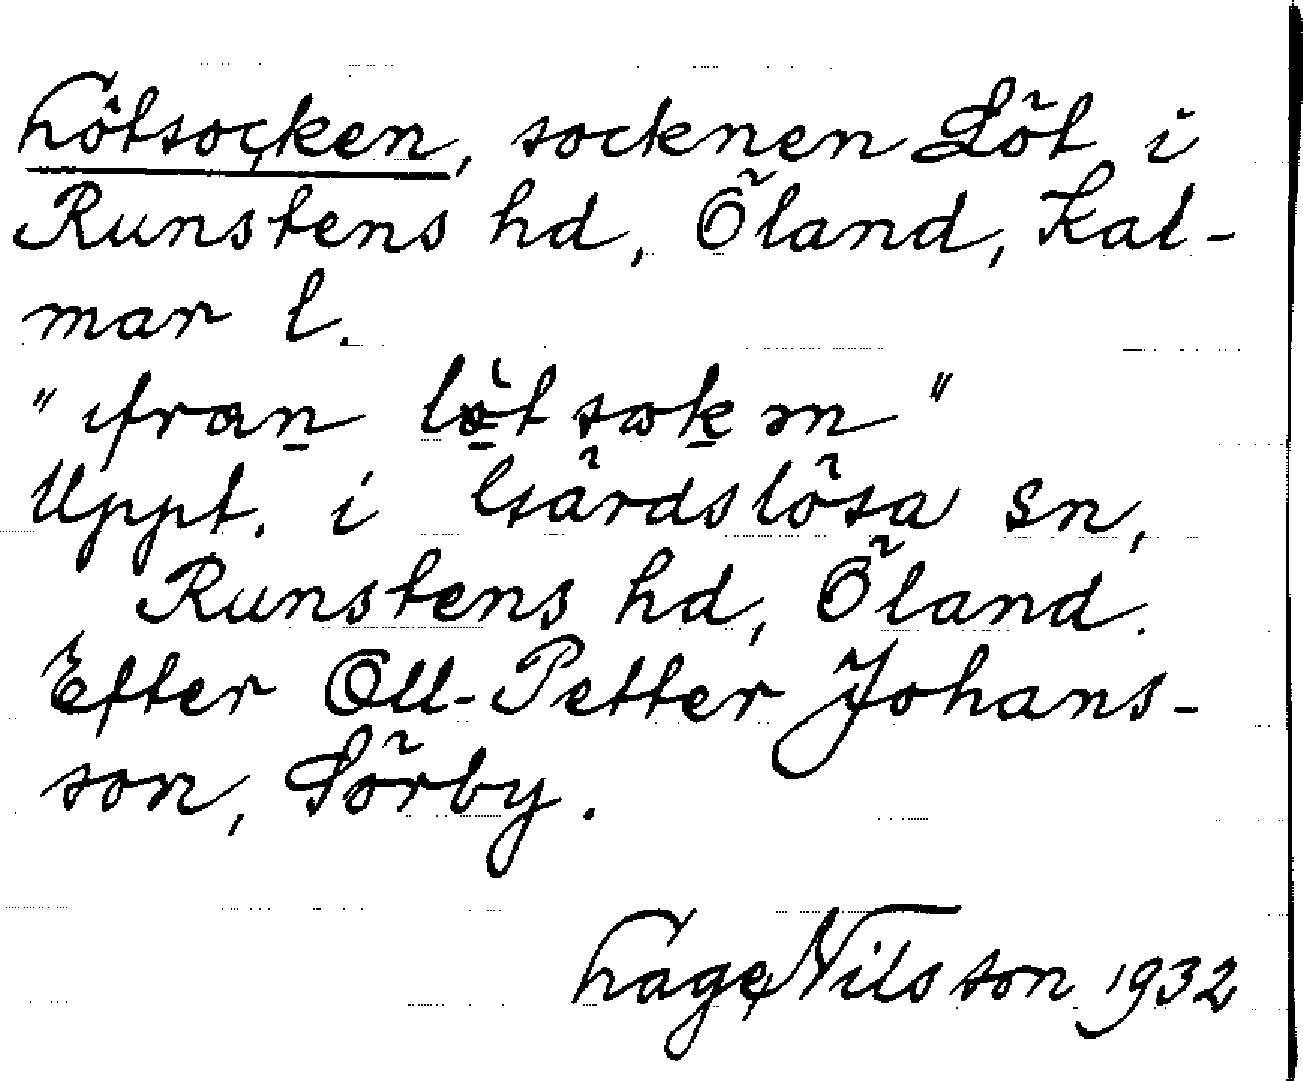 Lötsocken, socknen Löt i
Runstens hd, Öland, Kal-
mar l.
"ifran löt sokm"
Uppt. i Gärdslösa Sn,
Runstens hd, Öland.
Efter Oll-Petter Johans-
son, Sörby.
Lage Nilsson 1932